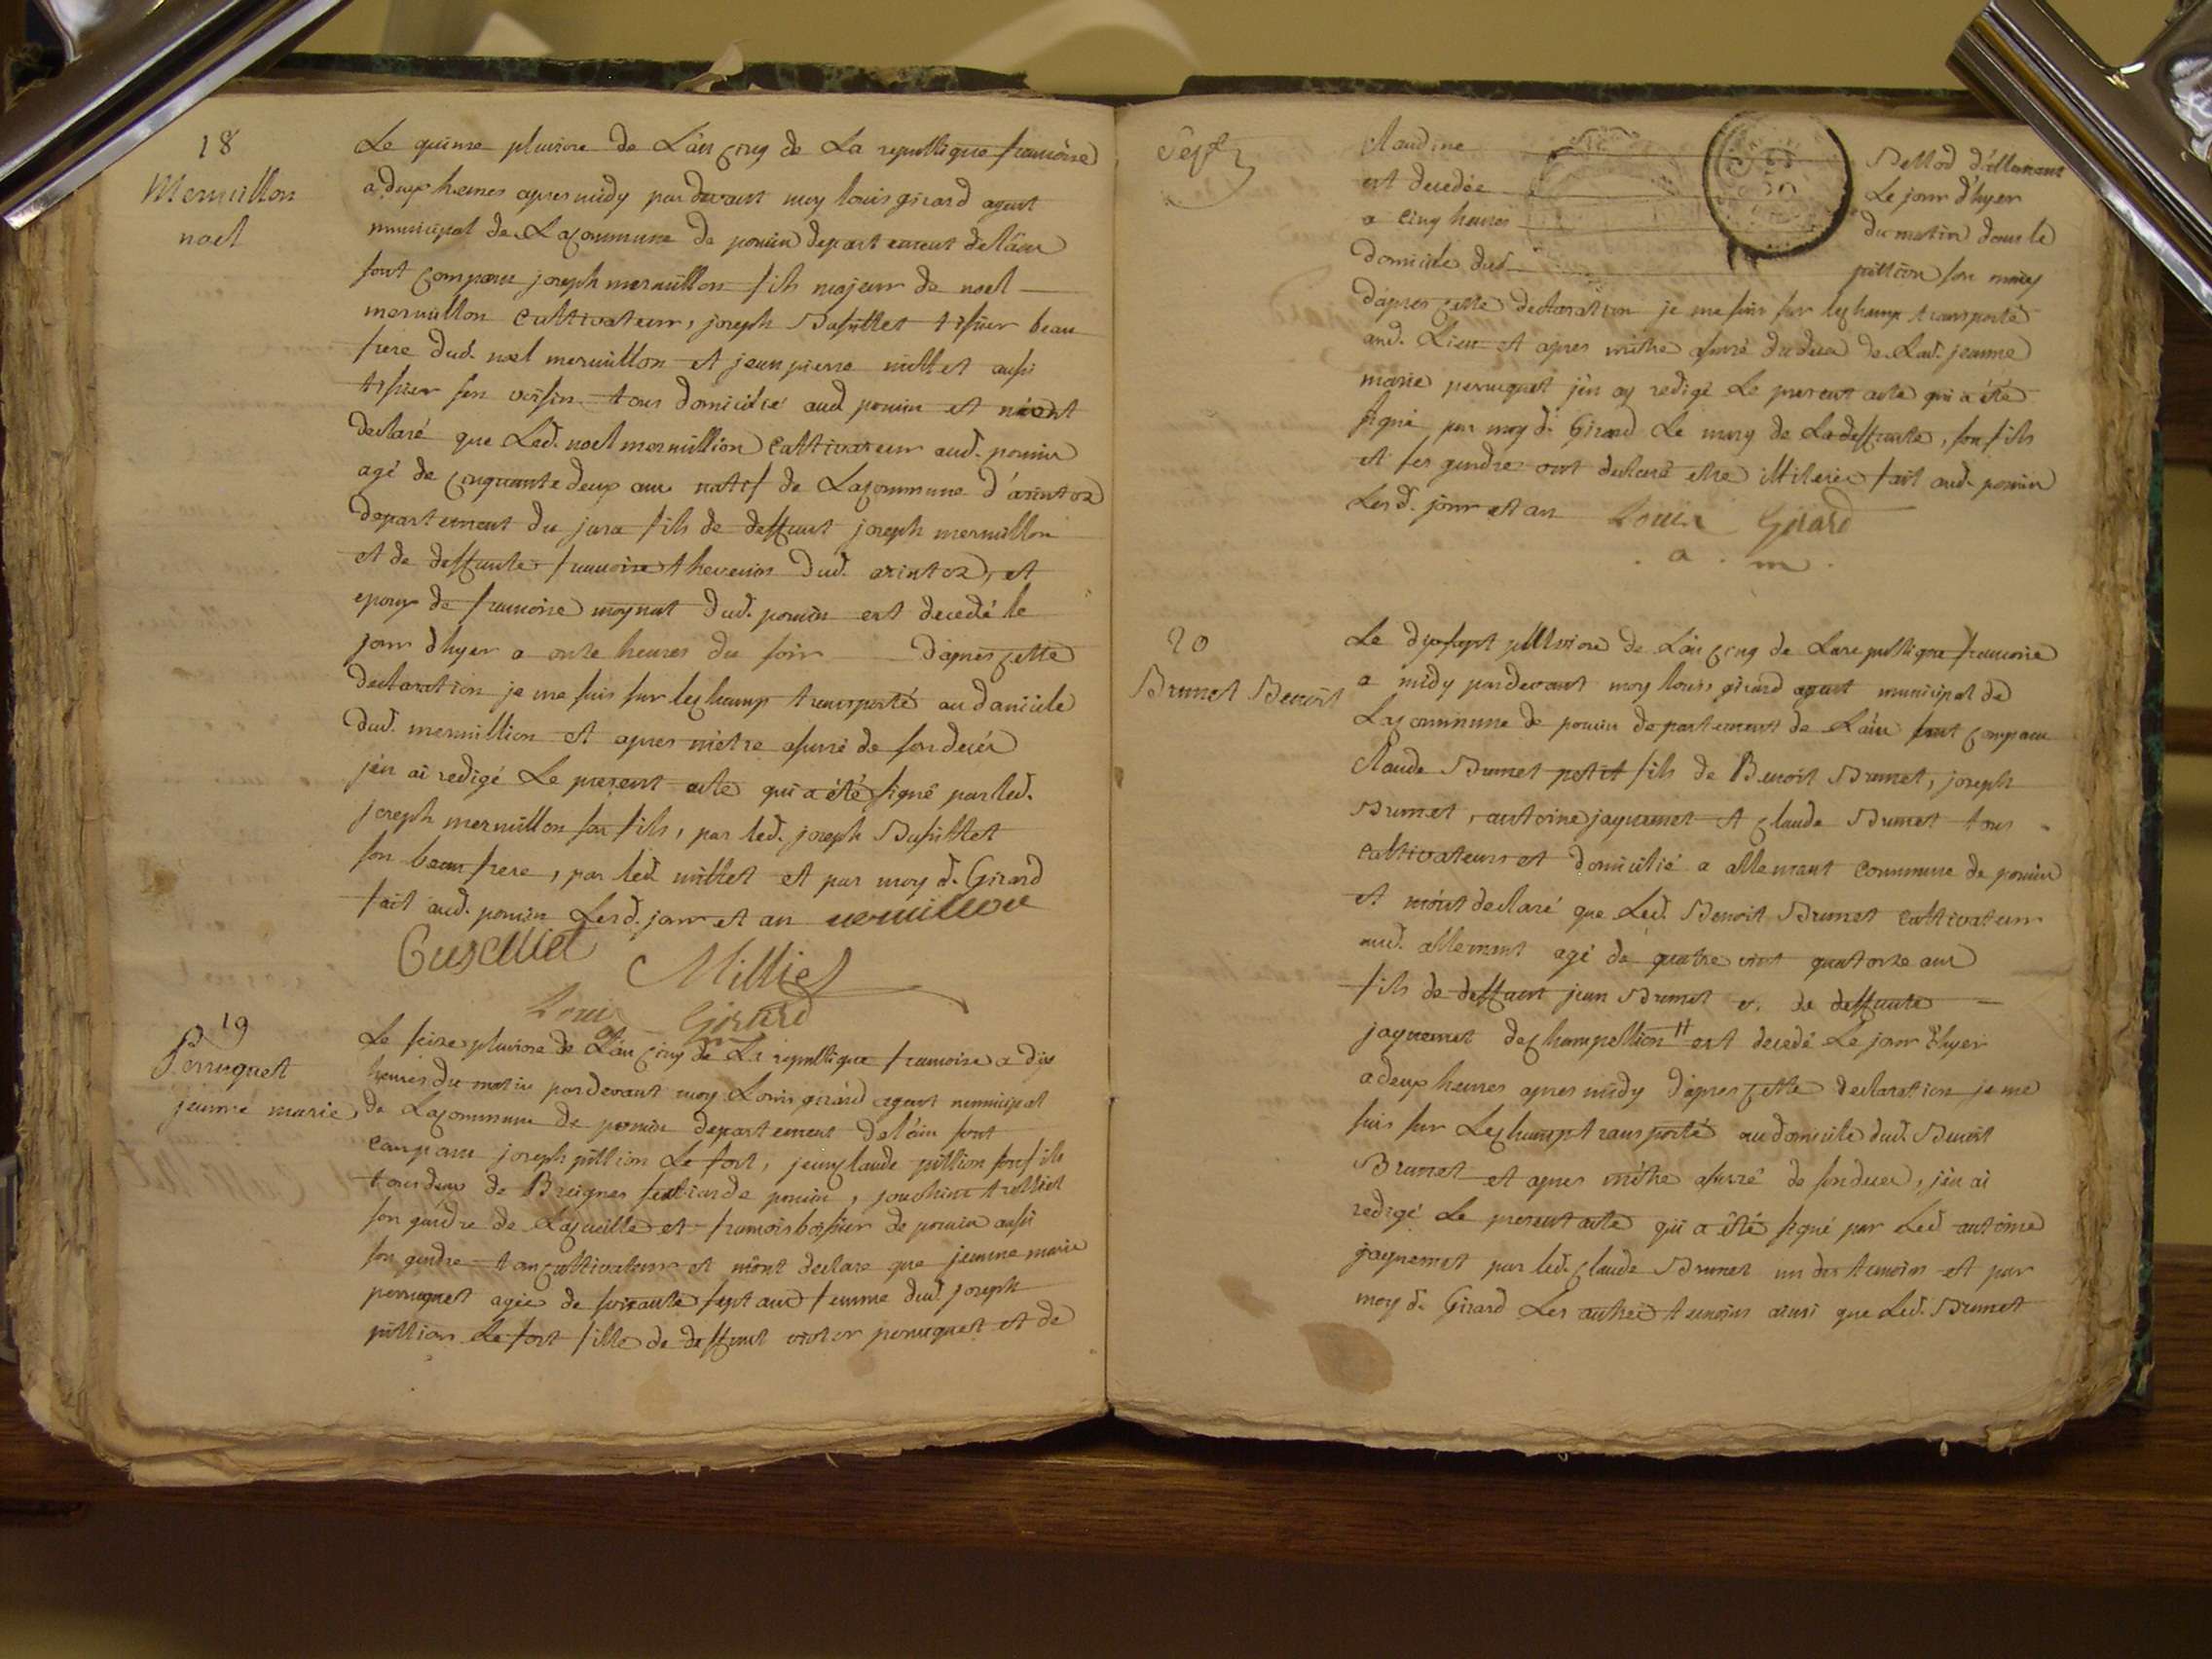 18
Mermillon
noel
Le quinze pluviose de L'an cinq de La republique francoise
a deux heures apres midy par devant moy louis girard agent
municipal de La commune de poncin departement de l'ain
sont comparu joseph mermillon fils majeur de noel
mermillon cultivateur, joseph Busillet tissier beau
frere dud. noel mermillon et jean pierre millet aussi
tissier son voisin tous domicilié aud poncin et m'ont
declaré que Led. noel mermillion cultivateur aud. poncin
agé de cinquante deux ans natif de La commune d'arintoz
departement du jura fils de deffunt joseph mermillon
et de deffunte francoise thevenin dud. arintoz, et
epoux de francoise moynat dud. poncin est decedé le
jour d'hyer a onze heures du soir d'apres cette
declaration je me suis sur le champ transporté au domicile
dud. mermillion et apres m'etre assuré de son decés
j'en ai redigé Le present acte qui a été signé par led.
joseph mermillon son fils, par led. joseph Busillet
son beau frere, par led millet et par moy d. Girard
fait aud. poncin Lesd. jour et an mermillon
Busellet
Milliet
Louis Girard
19
Perruquet
jeanne marie
Le seize pluviose de L'an cinq de La republique francoise a dix
heures du matin par devant moy Louis girard agent municipal
de La commune de poncin departement de l'ain sont
comparu joseph pittion Le fort, jean claude pittion son fils
tous deux de Breignes de poncin, joachim trolliet
son gendre de La cueille et francois bossier de poncin aussi
son gendre tous cultivateurs et m'ont declare que jeanne marie
perruquet agée de soixante sept ans femme dud. joseph
pittion Le fort fille de deffunt victor perruquet et de
Sept
Claudine Bellod d'allemant
est decedée Le jour d'hyer
a cinq heures du matin dans le
domicile dud. pittion son mary
d'apres cette declaration je me suis sur le champ transporté
aud. Lieu et apres m'etre assuré du deces de Lad. jeanne
marie perruquet j'en ay redigé Le present acte qui a été
signé par moy d. Girard Le mary de La deffunte, son fils
et ses gendre ont declaré etre illiteré fait aud. poncin
Lesd. jour et an Louis Girard
a. m.
20
Brunet Benoit
Le dix sept pluviose de L'an cinq de La republique francoise
a midy par devant moy louis girard agent municipal de
La commune de poncin departement de L'ain sont comparu
Claude Brunet petit fils de Benoit Brunet, joseph
Brunet, antoine jaquemet et claude Brunet tous
cultivateurs et domicilié a allemant commune de poncin
et m'ont declaré que Led. Benoit Brunet cultivateur
aud. allemant agé de quatre vint quatorze ans
fils de deffunt jean Brunet et de deffunte
jaquemet de champellion est decedé Le jour d'hyer
a deux heures apres midy d'apres cette declaration je me
suis sur Le champ transporté au domicile dud. Benoit
Brunet et apres m'etre assuré de son deces, j'en ai
redigé Le present acte qui a été signé par Led antoine
jaquemet par led. claude Brunet un des temoins et par
moy d. Girard Les autres temoins ainsi que Led. Brunet